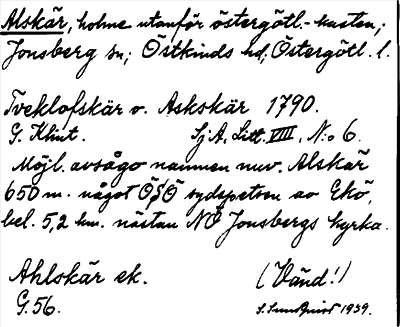 Alskär, holme utanför östergötl.-kusten;
Jonsberg sn; Östkinds hd; Östergötl. l.
Tveklofskär o. Askskär 1790.
G. Klint. SjA, Litt. VIII, N:o 6.
Möjl. avsågo namnen nuv. Alskär
650 m. något ÖSÖ sydspetsen av Ekö,
bel. 5,2 km. nästan NÖ Jonsbergs kyrka.
Ahlskär ek. (Vänd!)
G. 56. S. Sundquist 1939.